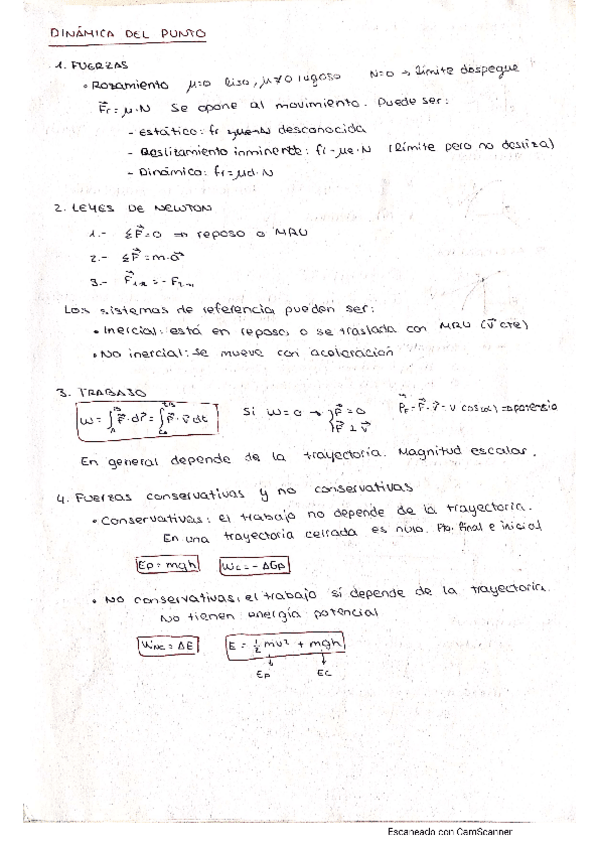 DINÁMICA DEL PUNTO
1. FUERZAS
• Rozamiento μ=0 liso, μ≠0 rugoso N=0 → límite despegue
Fr = μ·N Se opone al movimiento. Puede ser:
- Estático: fr desconocida
- Deslizamiento inminente: fr=μe·N (límite pero no desliza)
- Dinámico: fr=μd·N
2. LEYES DE NEWTON
1.- ΣF⃗=0 ⇒ reposo o MRU
2.- ΣF⃗=m·a⃗
3.- F⃗₁₋₂=-F₂₋₁
Los sistemas de referencia pueden ser:
• Inercial: está en reposo, o se traslada con MRU (v⃗ cte)
• No inercial: se mueve con aceleración
3. TRABAJO
W = ∫F⃗·dr⃗ = ∫F⃗·v⃗ dt Si W=0 → F⃗=0
F⃗ ⊥ v⃗
En general depende de la trayectoria. Magnitud escalar.
4. Fuerzas conservativas y no conservativas
• Conservativas: el trabajo no depende de la trayectoria.
En una trayectoria cerrada es nulo. Pto. final e inicial
Ep = mgh Wc = -ΔEp
• No conservativas: el trabajo sí depende de la trayectoria.
No tienen energía potencial
WNC = ΔE E = ½ mv² + mgh
Ep Ec
Escaneado con CamScanner